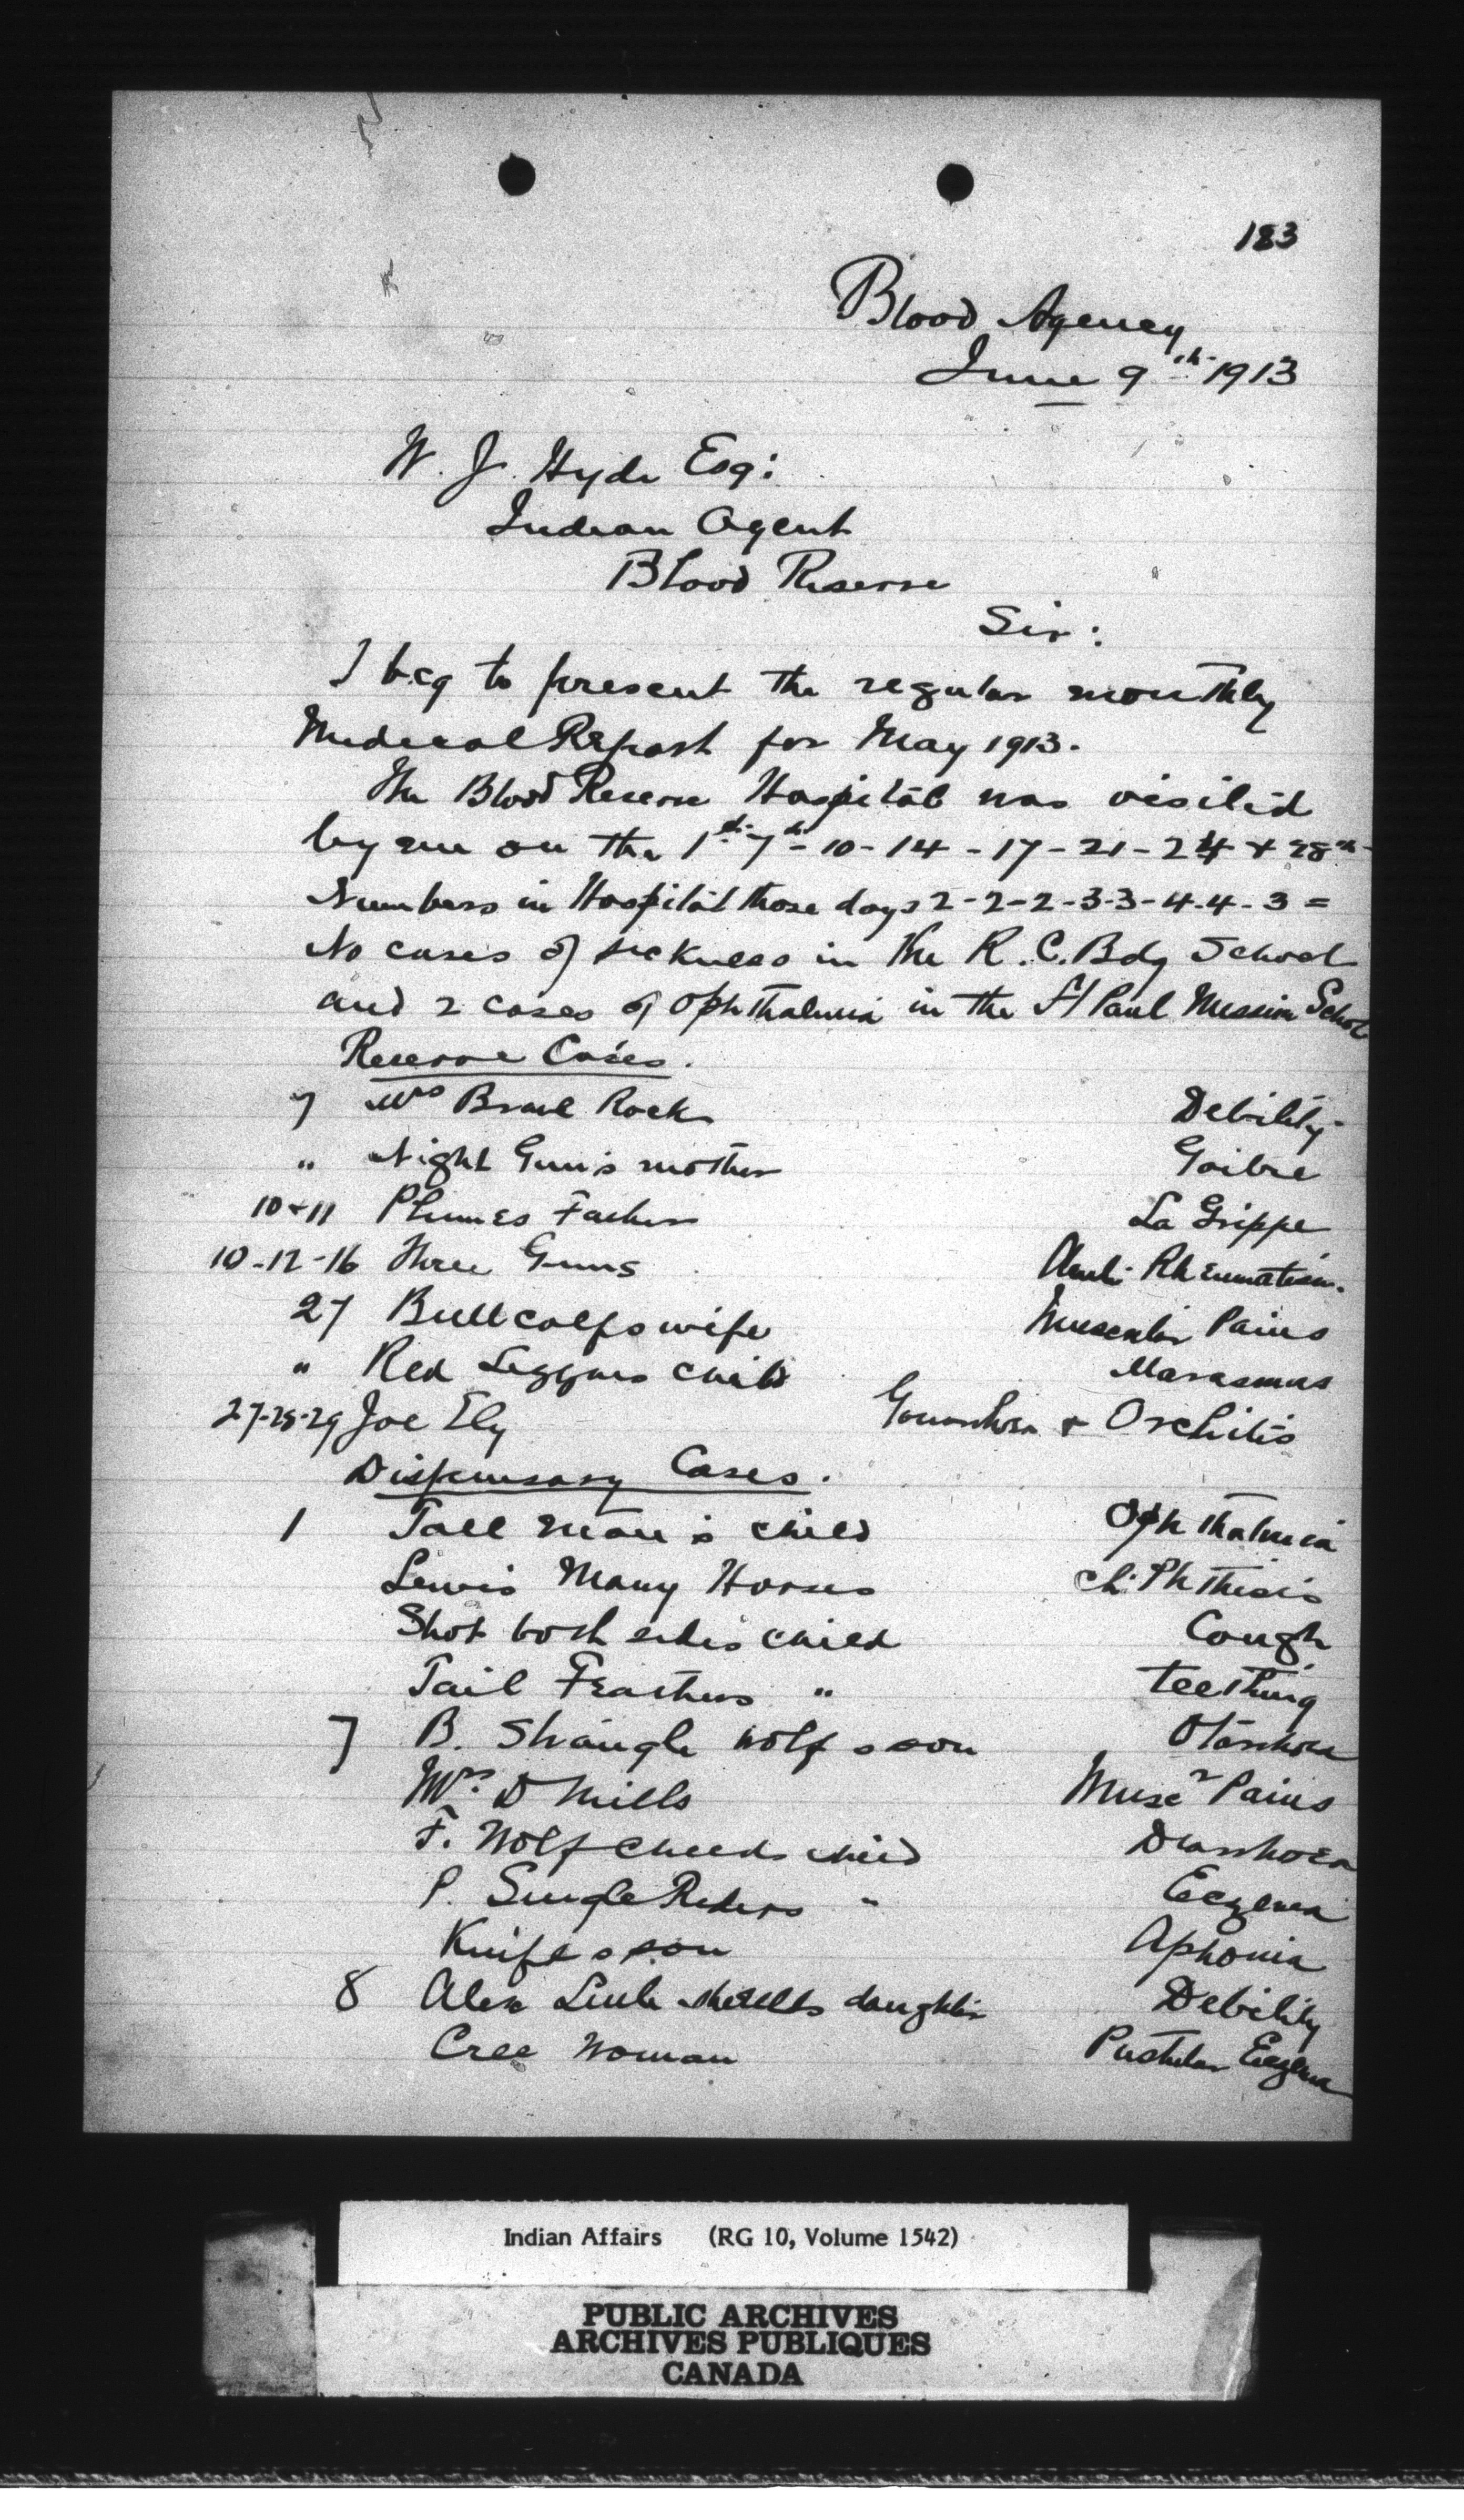 183
Blood Agency
June 9th 1913
W. J. Hyde Esq:
Indian Agent
Blood Reserve
Sir:
I beg to present the regular monthly
Medical Report for May 1913.
The Blood Reserve Hospital was visited
by me on the 1st 7th - 10 - 14 - 17 - 21 - 24 + 28th
Numbers in Hospital those days 2-2-2-3-3-4-4-3 =
No cases of sickness in the R. C. Bdg School
and 2 cases of Ophthalmia in the St Paul Mission School
Reserve Cases.
7 Mrs Rock Debility
" Night Gun's mother Goitre
10+11 Plumes Father La Grippe
10-12-16 Three Guns Rheumatism.
27 Bull calfs wife Muscular Pains
" Red Leggins child Marasmus
27-28-29 Joe Ely Gonorrhoea + Orchitis
Dispensary Cases.
1 Tall Man's child Ophthalmia
Lewis Many Horses Ch. Phthisis
Shot both sides child Cough
Tail Feathers " teething
7 B. Shangle wolf s son Otorrhoea
Mrs D Mills Muscr Pains
F. Wolf child Diarrhoea
P. Single Riders " Eczema
Knifes son Aphonia
8 Alex daughter Debility
Cree Woman Pustular Eczema
Indian Affairs (RG 10, Volume 1542)
PUBLIC ARCHIVES
ARCHIVES PUBLIQUES
CANADA